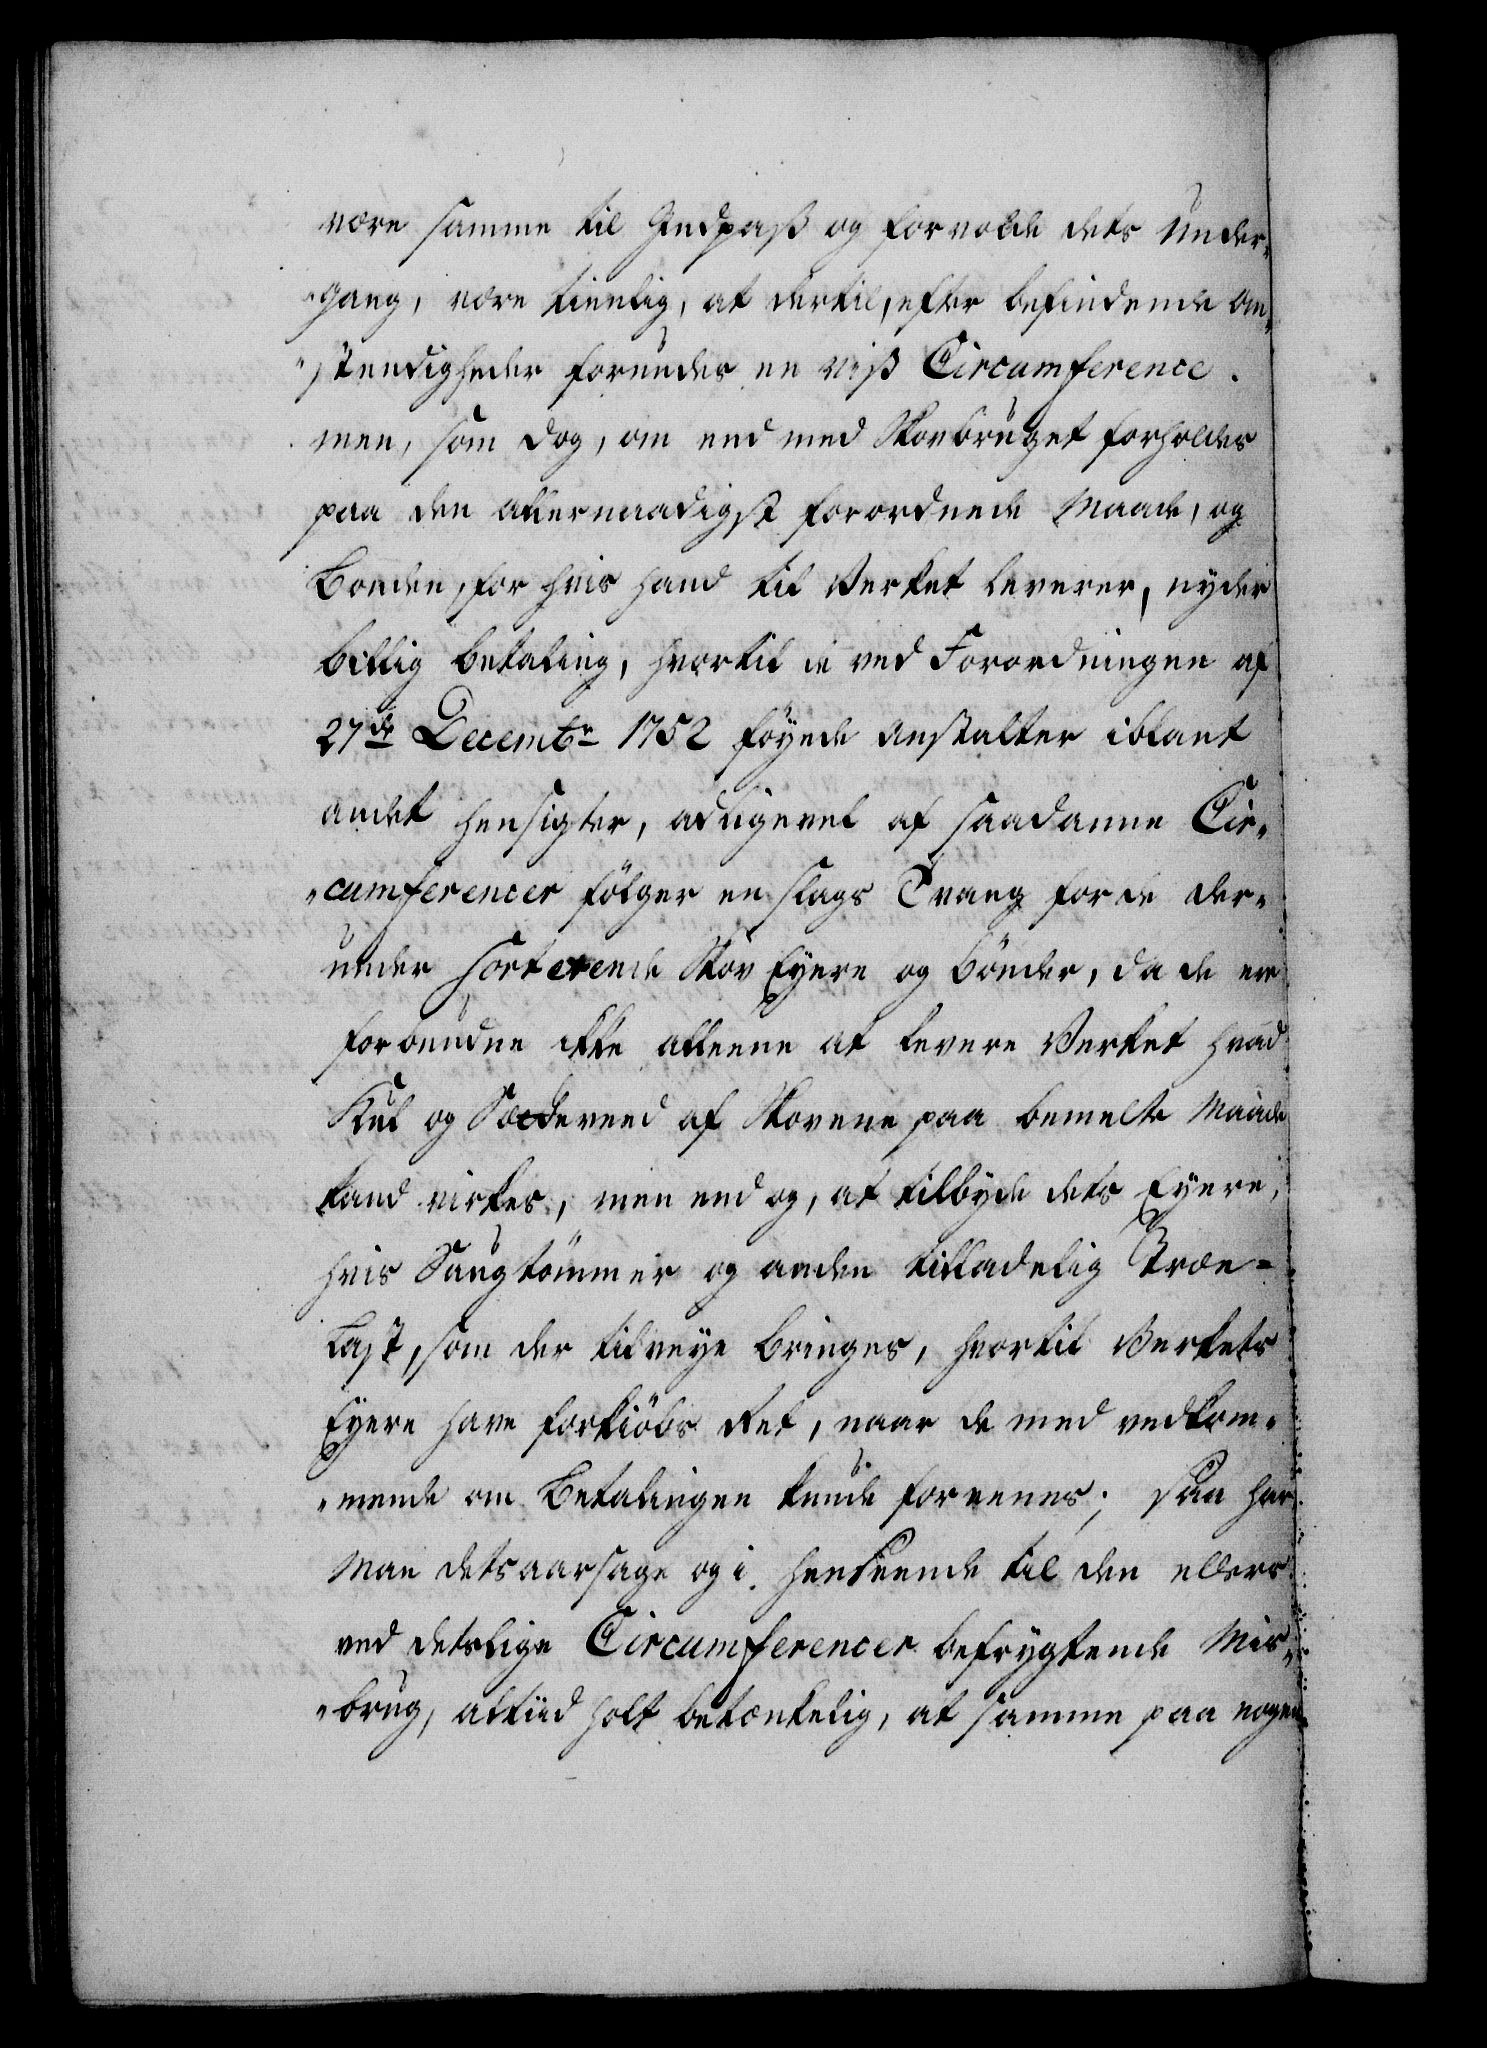 være samme til Indpass og forvolde dets Under-
gang, være tienlig, at dertil, efter befindende Om-
stendigheder forundes en viss Circumference.
men, som dog, om end med Skovbruget forholdes
paa den allernaadigst forordnede Maade, og
Bonden, for hvis hand til Verket leverer, nyder
billig betaling, hvortil de ved Forordningen af
27de Decembr 1752 föyede Anstalter iblant
andet hensigter, alligevel af saadanne Cir-
cumferencer fölger en slags Tvang for de der-
under sorterende Skov Eyere og bönder, da de ere
forbundne ikke alleene at levere Verket hvad
Kul og Sædeveed af Skovene paa bemelte Maade
kand virkes, men end og, at tilbyde dets Eyere,
hvis Saugtömmer og anden tilladelig Træ-
Last, som der tilveye bringes, hvortil Verkets
Eyere have forkiöbs Ret, naar de med vedkom-
mende om Betalingen kunde foreenes; saa har
Man detsaarsage og i henseende til den ellers
ved deslige Circumferencer befrygtende Mis-
brug, altiid holt betænkelig, at samme paa nogen